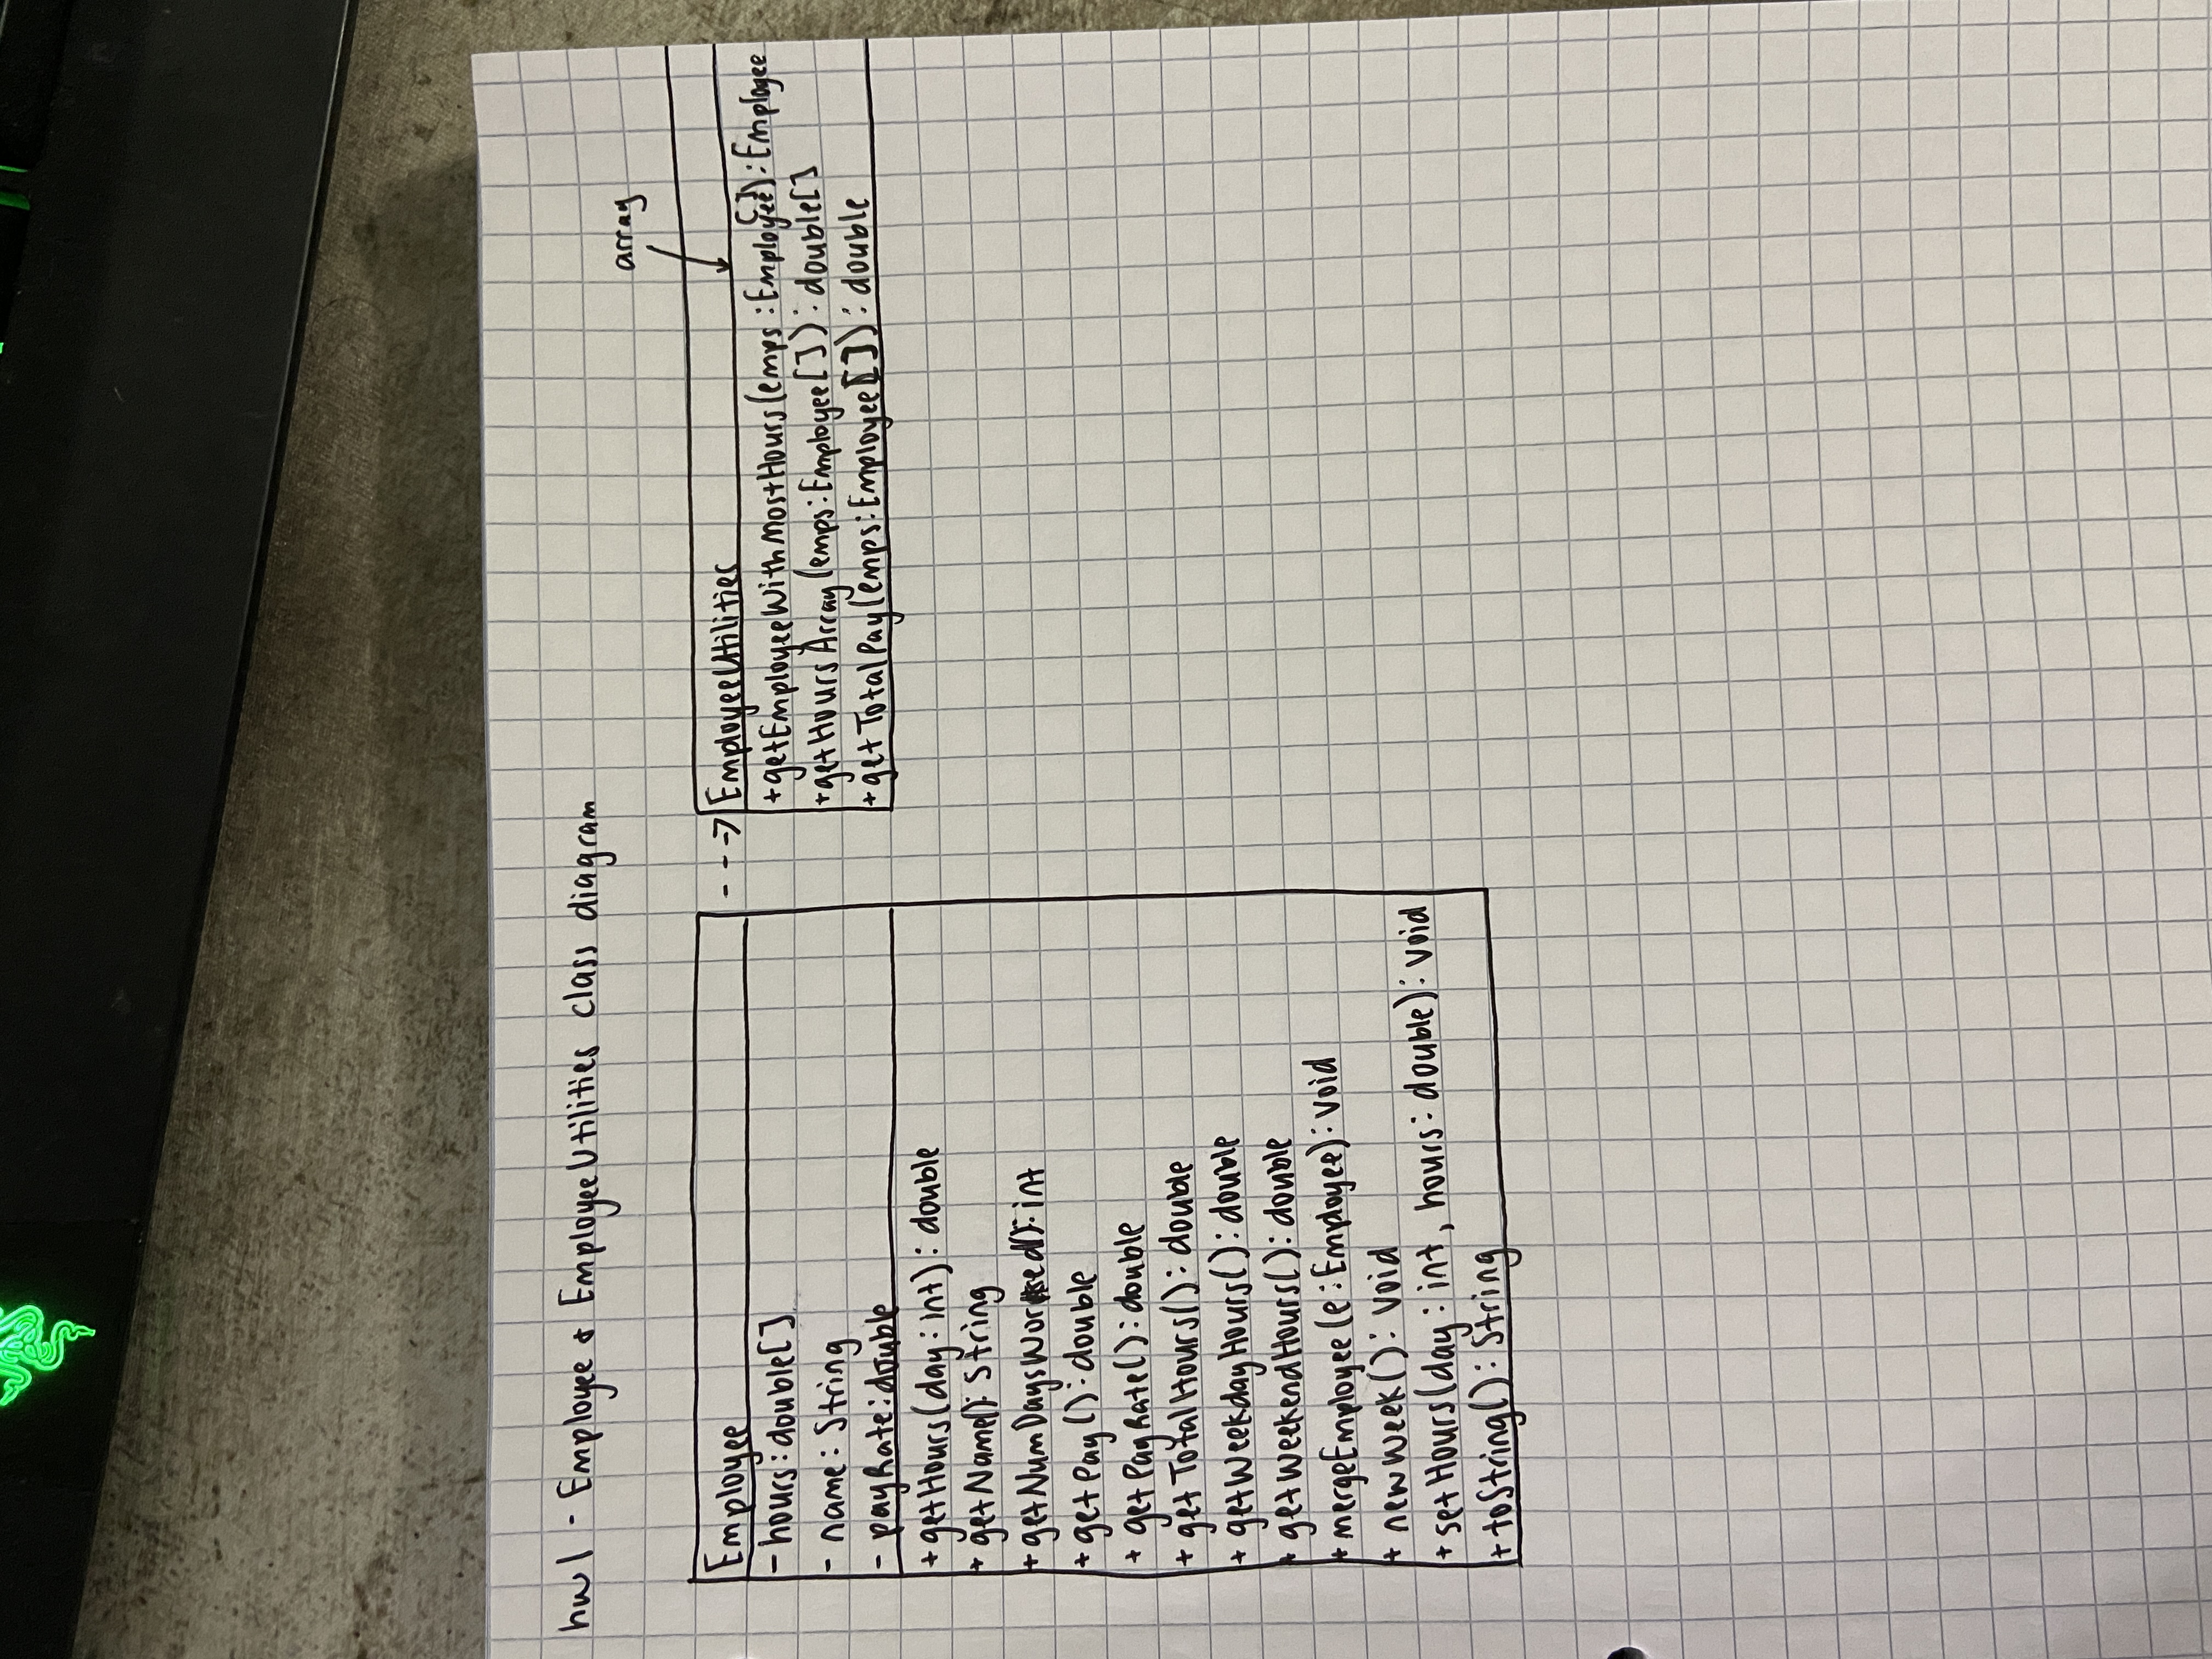 hw1 - Employee & EmployeeUtilities class diagram
array
Employee
- hours: double[]
- name: String
- payRate: double
+ getHours(day: int): double
+ getName(): String
+ getNumDaysWorked(): int
+ getPay(): double
+ getPayRate(): double
+ getTotalHours(): double
+ getWeekdayHours(): double
+ getWeekendHours(): double
+ mergeEmployee(e: Employee): void
+ newWeek(): void
+ setHours(day: int, hours: double): void
+ toString(): String
EmployeeUtilities
+getEmployeeWithMostHours(emps: Employee[]): Employee
+getHoursArray(emps: Employee[]): double[]
+getTotalPay(emps: Employee[]): double